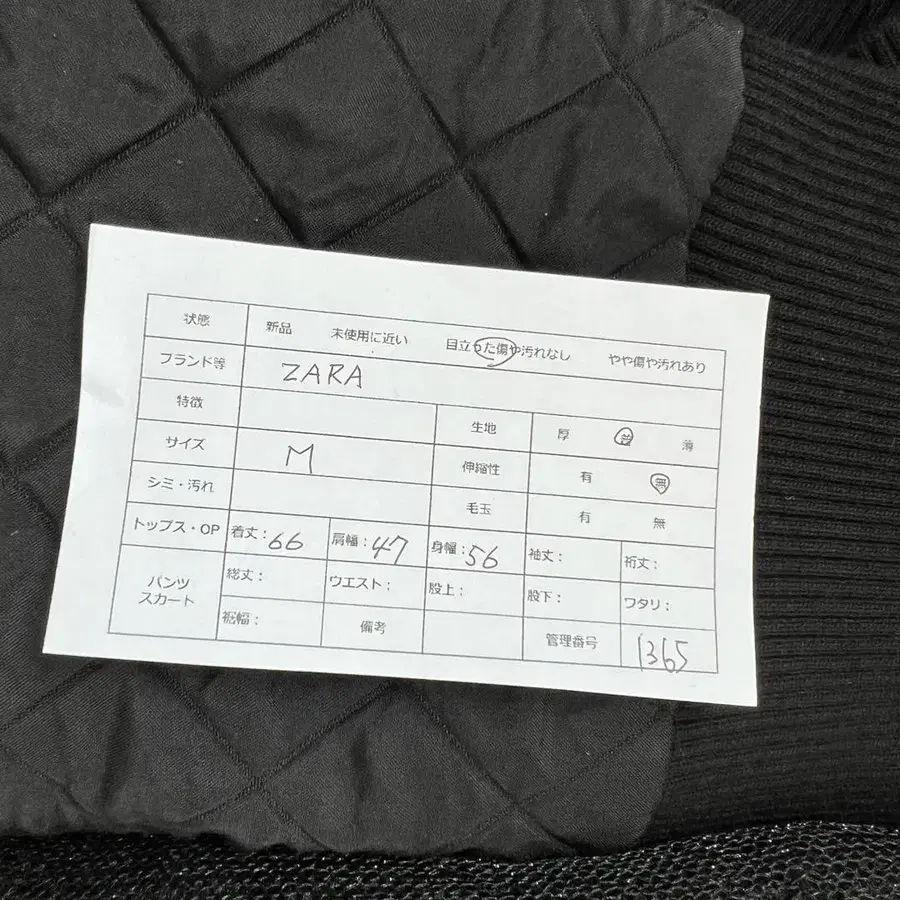 状態 新品 未使用に近い 目立った傷や汚れなし やや傷や汚れあり
ブランド等 ZARA
特徴 生地 厚 普 薄
サイズ M 伸縮性 有 無
シミ・汚れ 毛玉 有 無
トップス・OP 着丈:66 肩幅:47 身幅:56 袖丈: 裄丈:
パンツ スカート 総丈: ウエスト: 股上: 股下: ワタリ:
裾幅: 備考 管理番号 1365